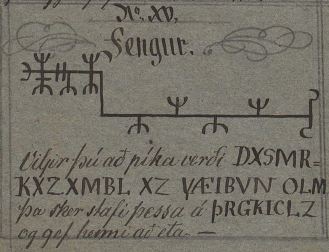 No. XV.
Fengur.
Viljir þú að píka verði DXSMR-
KXZXMBL XZ VÆIBVN OLM
þa sker stafi þessa á ÞRGKICLZ
og gef henni að eta. —